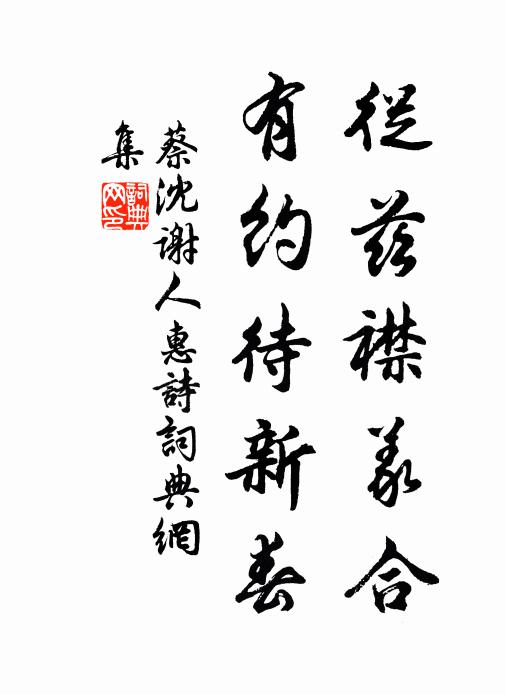 從茲襟義合
有約待新春
蔡沈謝人惠詩詞典網
集
詞典網印